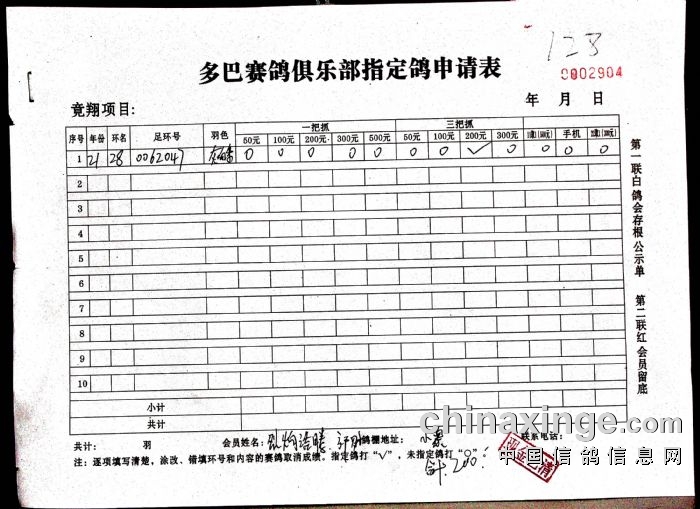 123
0002904
多巴赛鸽俱乐部指定鸽申请表
竟翔项目:
年 月 日
序号 年份 环名 足环号 羽色 一把抓 三把抓
50元 100元 200元 300元 500元 50元 100元 200元 300元 手机
1 21 28 0062047 0 0 0 0 0 0 0 ✓ 0 0 0 0
2
3
4
5
6
7
8
9
10
小计
共计
共计: 羽 会员姓名: 鸽棚地址: 联系电话:
注:逐项填写清楚,涂改、错填环号和内容的赛鸽取消成绩。指定鸽打"√",未指定鸽打"O"。
合计200
现金已清
第一联白鸽会存根公示单 第二联红会员留底
chinaxinge.com
中国信鸽信息网